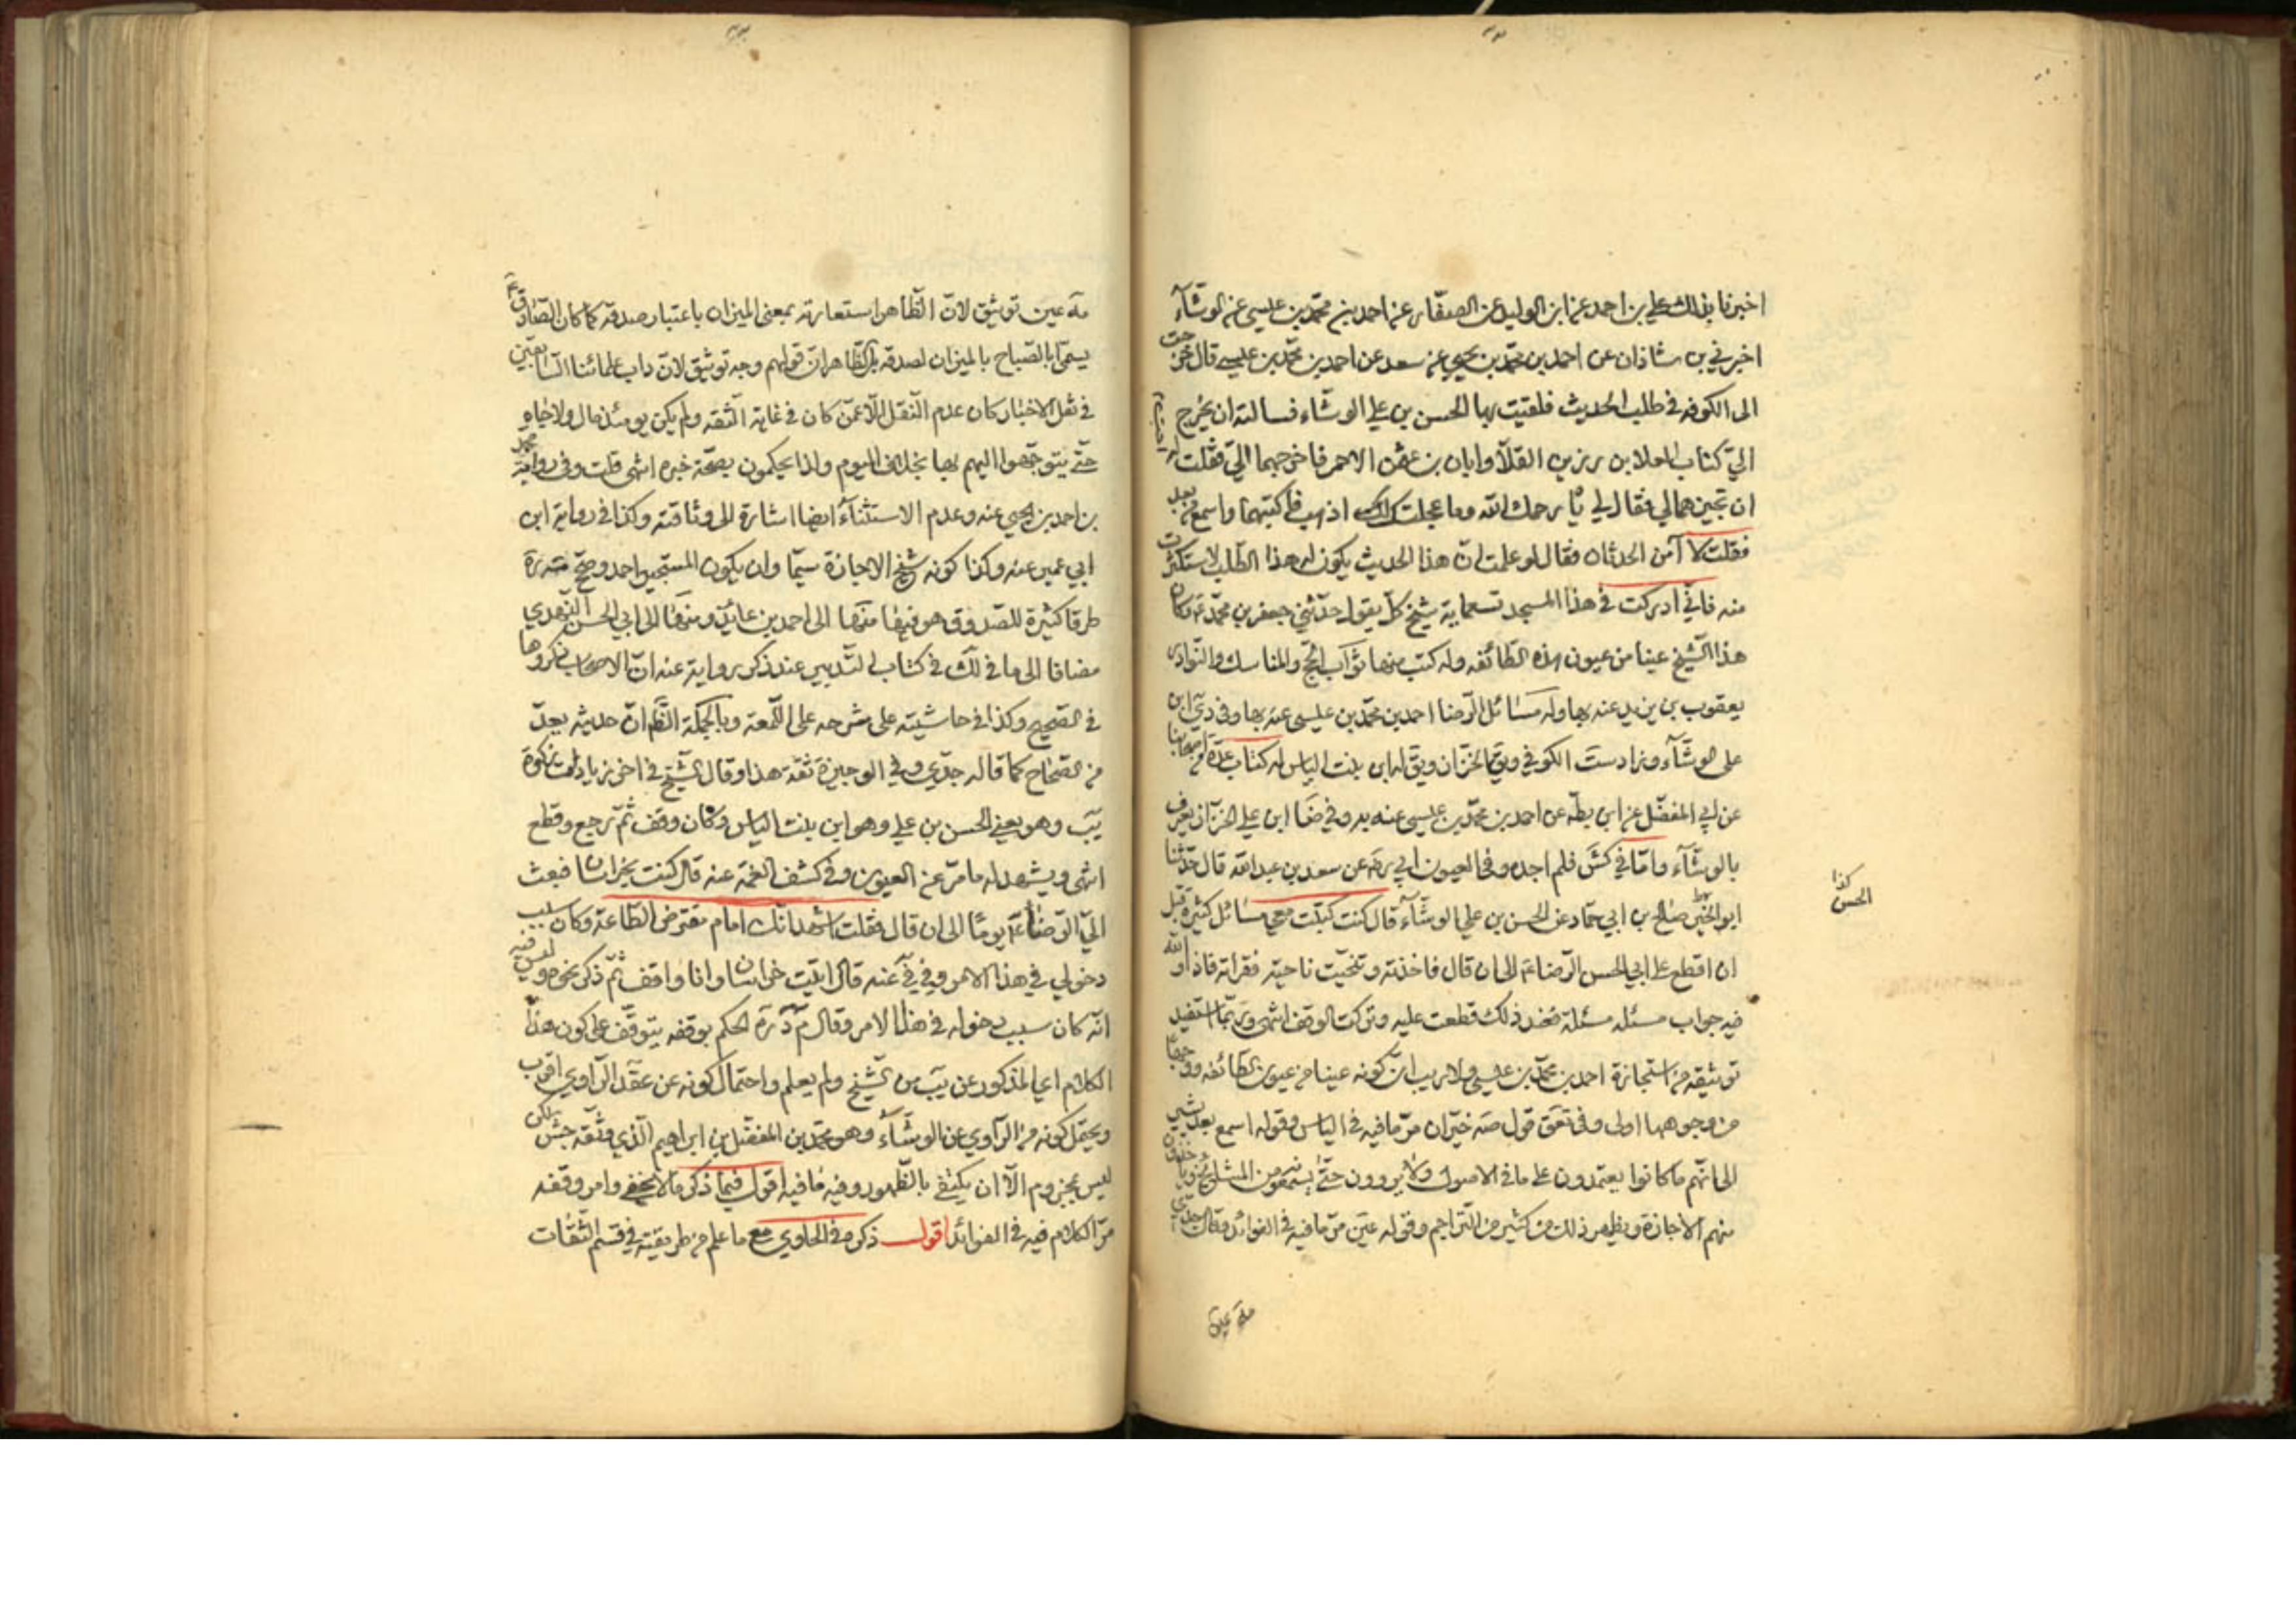 اخبرنا بذلك علي بن احمد عن ابن الوليد عن الصفّار عن احمد بن محمّد بن عيسى عن الوشّآء
اخبرني بن شاذان عن احمد بن محمّد بن يحيى عن سعد عن احمد بن محمّد بن عيسى قال خرجت
الى الكوفه في طلب الحديث فلقيت بها الحسن بن علي الوشّاء فسالته ان يخرج
اليّ كتاب العلا بن رزين القلّا وابان بن عثمن الاحمر فاخرجهما اليّ فقلت له احبّ
ان تجيزهما لي فقال لي يا رحمك الله وما عجلتك اذهب فاكتبهما واسمع من بعد
فقلت لا آمن الحدثان فقال لو علمت انّ هذا الحديث يكون له هذا الطّلب لاستكثرت
منه فانّي ادركت في هذا المسجد تسعماية شيخ كلّ يقول حدّثني جعفر بن محمّد ع وكان
هذا الشّيخ عينا من عيون هذه الطّائفه وله كتب منها ثوآب الحجّ والمناسك والنّوادر
يعقوب بن يزيد عنه بها وله مسَائل الرّضا احمد بن محمّد بن عيسى عنه بها وفي دي ابن
على الوشّآء وزاد ست الكوفي ويق الخزّاز ويق له ابن بنت الياس له كتاب عدّة من اصحابنا
عن ابي المفضّل عن ابن بطّه عن احمد بن محمّد بن عيسى عنه به وفي ضا ابن علي الخزّاز يعرف
بالوشّآء وامّا في كش فلم اجده وفي العيون ابي ره عن سعد بن عبد الله قال حدّثنا
ابو الخير صالح بن ابي حمّاد عن الحسن بن علي الوشّآء قال كنت كتبت معي مسَائل كثيرة قبل
كذا
الحسن
ان اقطع على ابي الحسن الرّضا ع الى ان قال فاخذته وتنحّيت ناحية فقراته فاذا والله
فيه جواب مسئله مسئلة فعند ذلك قطعت عليه وتركت الوقف انتهى وربّما استفيد
توثيقه من استجازة احمد بن محمّد بن عيسى ولا ريب انّ كونه عينا من عيون الطّائفه ووجها
من وجوهها اولى وفي تعق قول صه خيّران مرّ ما فيه في الياس وقوله اسمع بعد يشير
الى انّهم ما كانوا يعتمدون على ما في الاصول ولا يروون حتّى يسمعوه من المشايخ او ياخذون
منهم الاجازة ويظهر ذلك من كثير من التّراجم وقوله عين مرّ ما فيه في الفوائد وقال جدّي
مه عين
مه عين توثيق لانّ الظّاهر استعارته بمعنى الميزان باعتبار صدقه كما كان الصّادق ع
يسمّي ابا الصّباح بالميزان لصدقه بل الظّاهر انّ قولهم وجه توثيق لانّ داب علمائنا السّابقين
في نقل الاخبار كان عدم النّقل الّا عمّن كان في غاية الثّقه ولم يكن يومئذ مال ولا جاه
حتّى يتوجّهوا اليهم بها بخلاف اليوم ولذا يحكمون بصحّة خبره انتهى قلت وفي رواية محمد
بن احمد بن يحيى عنه وعدم الاستثنآء ايضا اشارة الى وثاقته وكذا في رواية ابن
ابي عمير عنه وكذا كونه شيخ الاجازة سيّما وان يكون المستجيز احمد وصحّح
طرقا كثيرة للصّدوق هو فيها منها الى احمد بن عائذ ومنها الى ابي الحسن النّهدي
مضافا الى ما في لك في كتاب التّدبير عند ذكر رواية عنه انّ الاصحاب ذكروها
في الصّحيح وكذا في حاشيته على شرحه على اللّمعة وبالجملة الظّ انّ حديثه يعدّ
من الصّحاح كما قاله جدّي وفي الوجيزة ثقة هذا وقال الشّيخ في اخر زيادات زكوة
يب وهو يعني الحسن بن علي وهو ابن بنت الياس وكان وقف ثمّ رجع وقطع
انتهى ويشهد له ما مرّ عن العيون وفي كشف الغمّة عنه قال كنت بخراسان فبعث
اليّ الرّضا ع يومًا الى ان قال فقلت اشهد انّك امام مفترض الطّاعة وكان سبب
دخولي في هذا الامر وفي في عنه قال اتيت خراسان وانا واقف ثمّ ذكر نحوه وليس فيه
انّه كان سبب دخوله في هذا الامر وقال الحكم بوقفه يتوقّف على كون هذا
الكلام اي المذكور عن يب من الشّيخ ولم يعلم واحتمال كونه عن الرّاوي اقرب
ويحتمل كونه من الرّاوي عن الوشّآء وهو محمّد بن المفضّل بن ابراهيم الّذي وثّقه جش لكن
ليس بمجزوم الّا ان يكتفى بالظّهور وفيه ما فيه اقول فيما ذكر ما لا يخفى وامر وقفه
مرّ الكلام فيه في الفوائد اقول ذكره في الحاوي مع ما علم من طريقته في قسم الثّقات